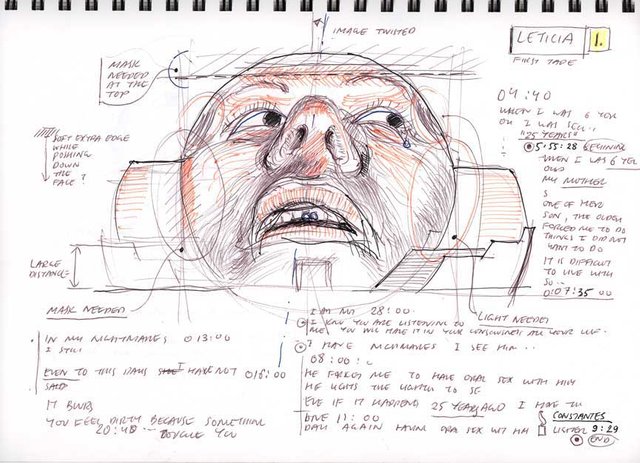 IMAGE TWISTED
LETICIA 1.
FIRST TAPE
MASK
NEEDED
AT THE
TOP
SOFT EXTRA EDGE
WHILE
PUSHING
DOWN
THE
FACE?
LARGE
DISTANCE
MASK NEEDED
04:40
WHEN I WAS 6
OR I WAS
"25 YEARS"
5:55:28
WHEN I WAS 6 YEAR
OLD
MY MOTHER
S
ONE OF HER
SON, THE OLDER
FORCED ME TO DO
THINGS I DID NOT
WANT TO DO
IT IS DIFFICULT
TO LIVE WITH
SO..
0:07:35 00
LIGHT NEEDED
IN MY NIGHTMARES 13:00
I STILL
EVEN TO THIS DAYS I HAVE NOT 16:00
SAID
IT BURNS
YOU FEEL DIRTY BECAUSE SOMETHING
20:40 YOU
I AM NOT 28:00
I KNOW YOU ARE LISTENING TO
ME YOU WILL HAVE IT IN YOUR ALL YOUR LIFE
I HAVE NIGHTMARES I SEE HIM..
08:00:
HE FORCED ME TO HAVE ORAL SEX WITH HIM
HE LIGHTS THE LIGHTER TO SE
EVE IF IT HAPPENS 25 YEARS AGO I HAVE TO
LIVE 11:00
DAY AGAIN HAVING ORAL SEX WITH HIM
CONSTANTES
LIGHTER 9:29
END